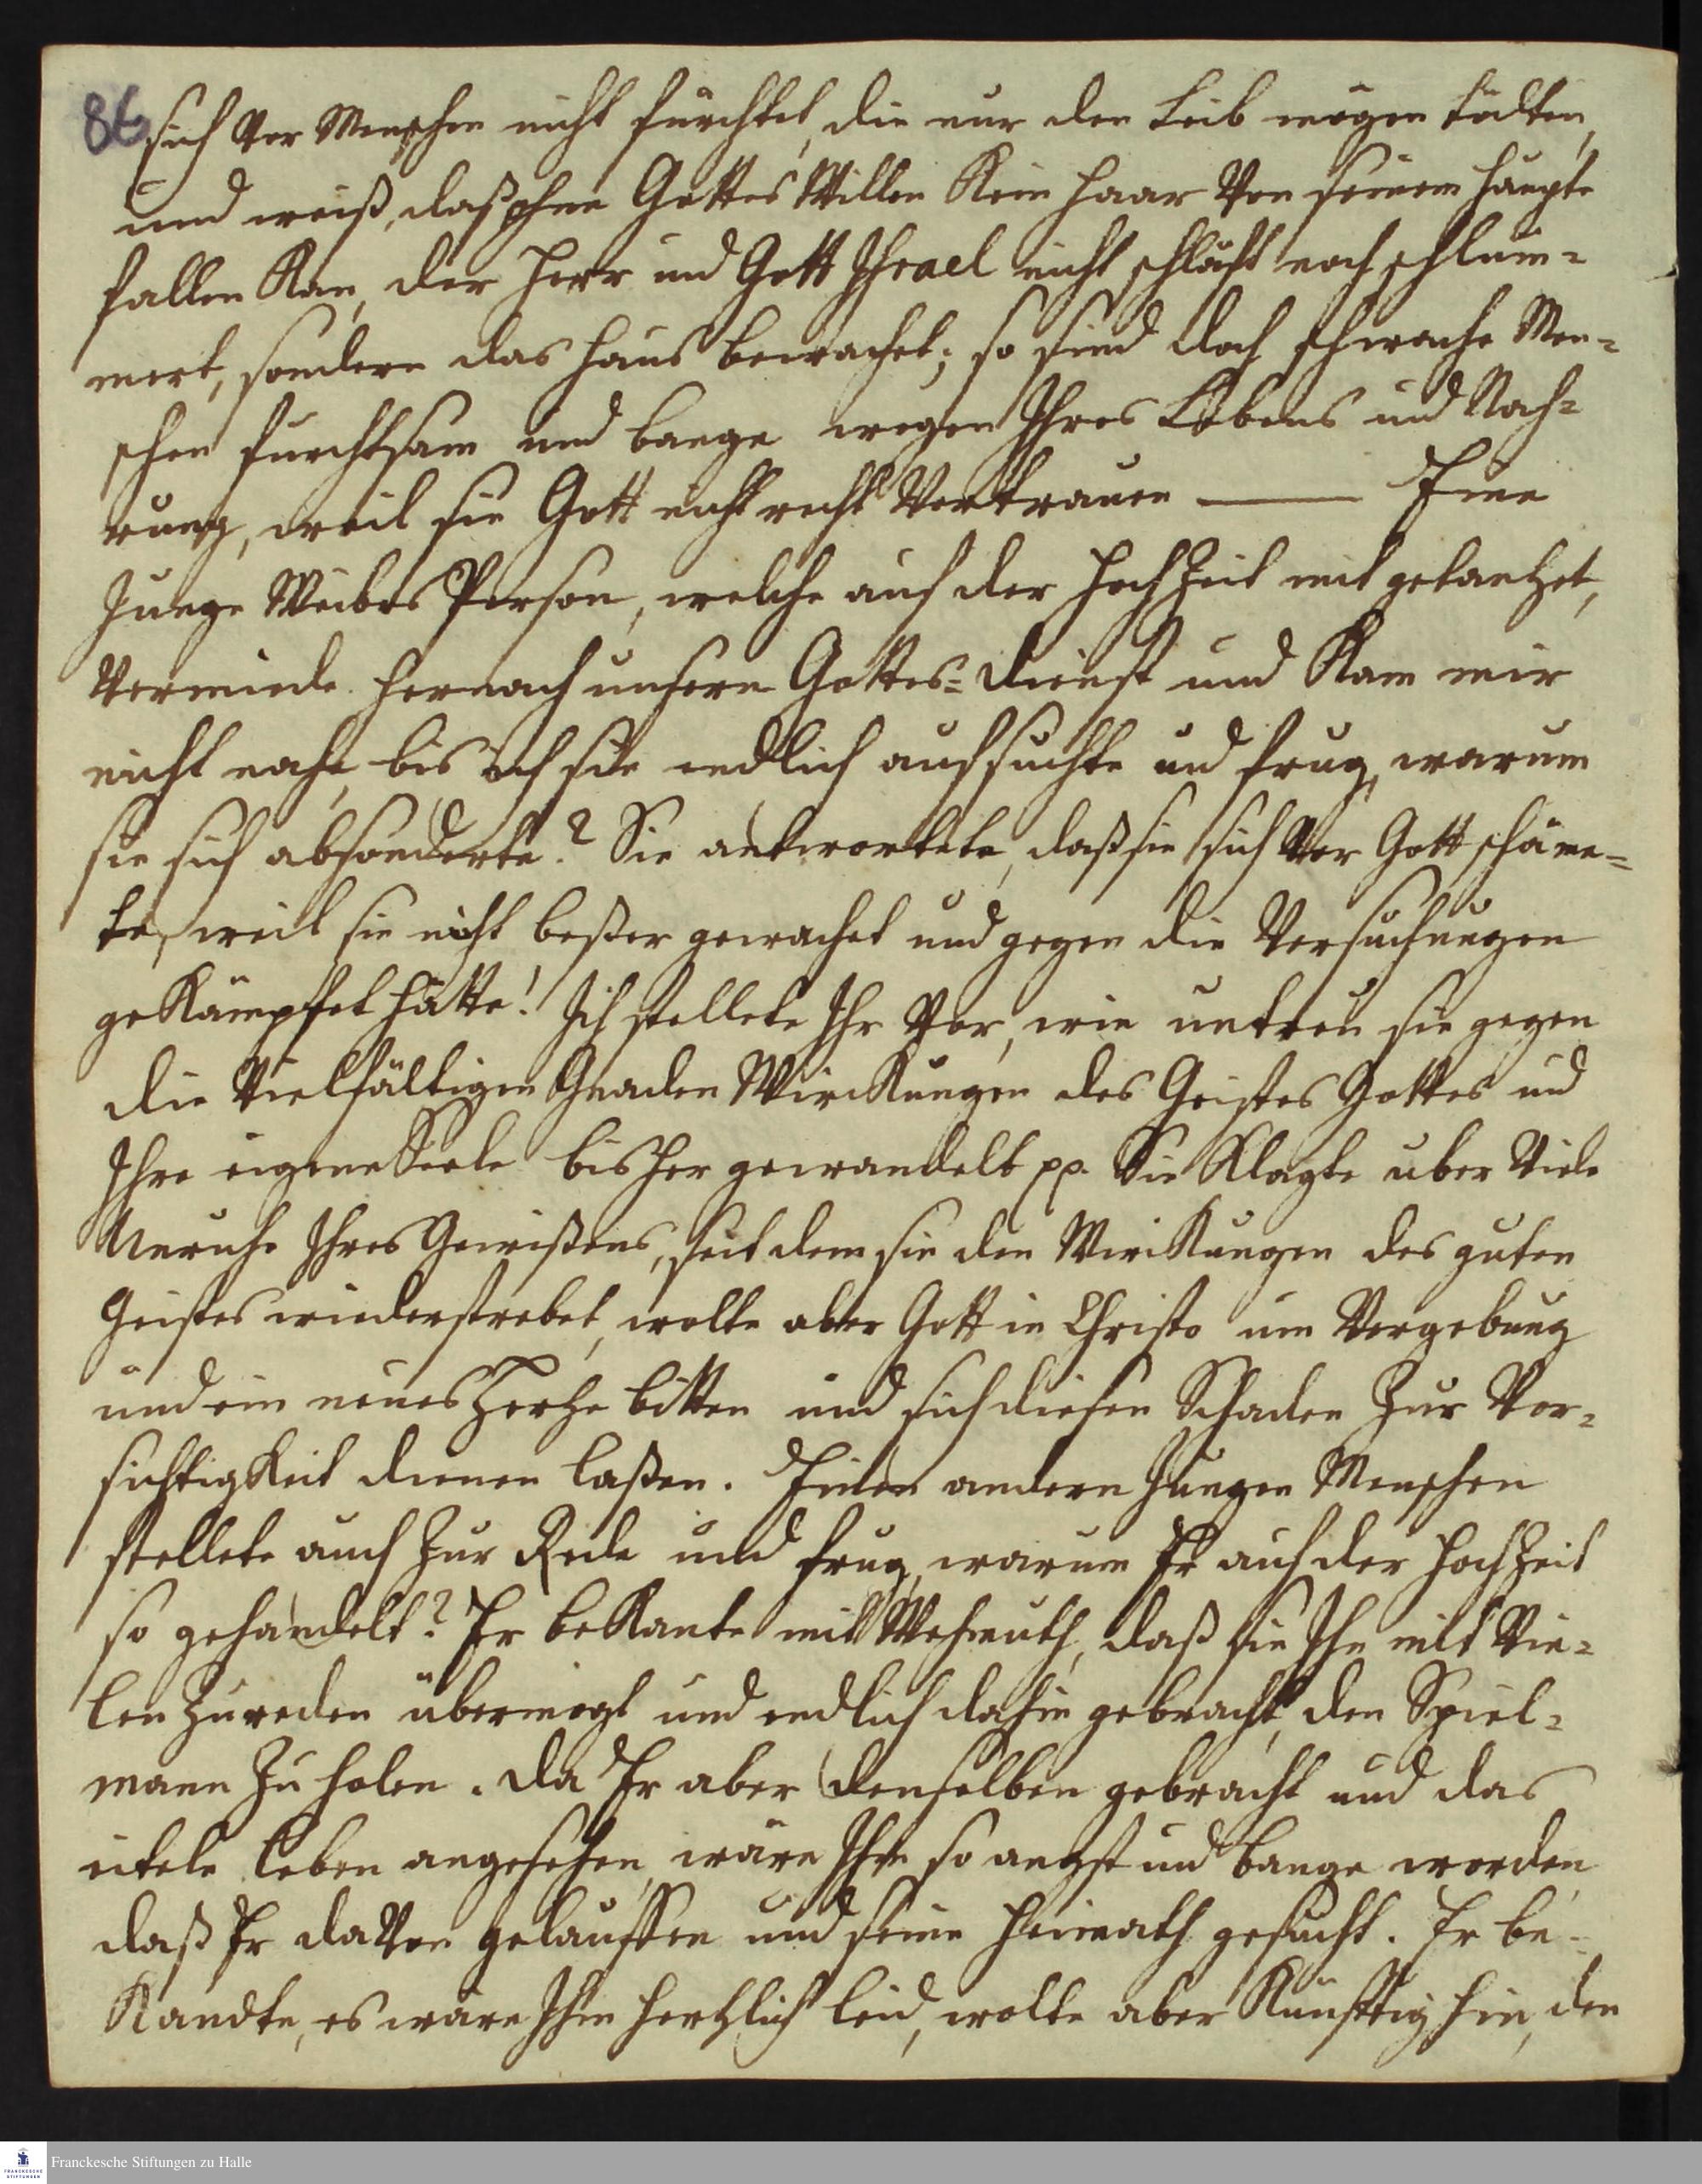 86
sich vor Menschen nicht fürchtet, die nur den Leib mögen tödten,
und weiß, daß ohne Gottes Willen Kein Haar von seinem Haupte
fallen Kan, der Herr und Gott Jsrael nicht schläft noch schlum=
mert, sondern das Haus bewachet; so sind doch schwache Men=
schen furchtsam und bange wegen Jhres Lebens und Nah=
rung, weil sie Gott nicht recht vertrauen ——— Eine
Junge Weibes Person, welche auf der HochZeit mit getantzet,
vermiede hernach unsern Gottes=dienst und Kam mir
nicht nahe, bis ich sie endlich aufsuchte und frug, warum
sie sich absonderte? Sie antwortete, daß sie sich vor Gott schäme=
te, weil sie nicht beßer gewachet und gegen die Versuchungen
geKämpfet hätte! Jch stellete Jhr vor, wie untreu sie gegen
die vielfältigen Gnaden WircKungen des Geistes Gottes und
Jhre eigene Seele bisher gewandelt pp. Sie Klagte uber viele
Unruhe Jhres Gewißens, seit dem sie den WircKungen des guten
Geistes wiederstrebet, wolte aber Gott in Christo um Vergebung
und ein neues Hertze bitten und sich diesen Schaden Zur Vor=
sichtigKeit dienen laßen. Einen andern Jungen Menschen
stellete auch Zur Rede und frug, warum Er auf der HochZeit
so gehandelt? Er beKante mit Wehmuth, daß sie Jhn mit vie=
len Zureden übermogt und endlich dahin gebracht, den Spiel=
mann Zu holen. Da Er aber denselben gebracht und das
eitele Leben angesehen, wäre Jhm so angst und bange worden,
daß Er davon gelauffen und seine Heimath gesucht. Er be=
Kandte, es wäre Jhm hertzlich leid, wolte aber Künfttig hin, den
Franckesche Stiftungen zu Halle